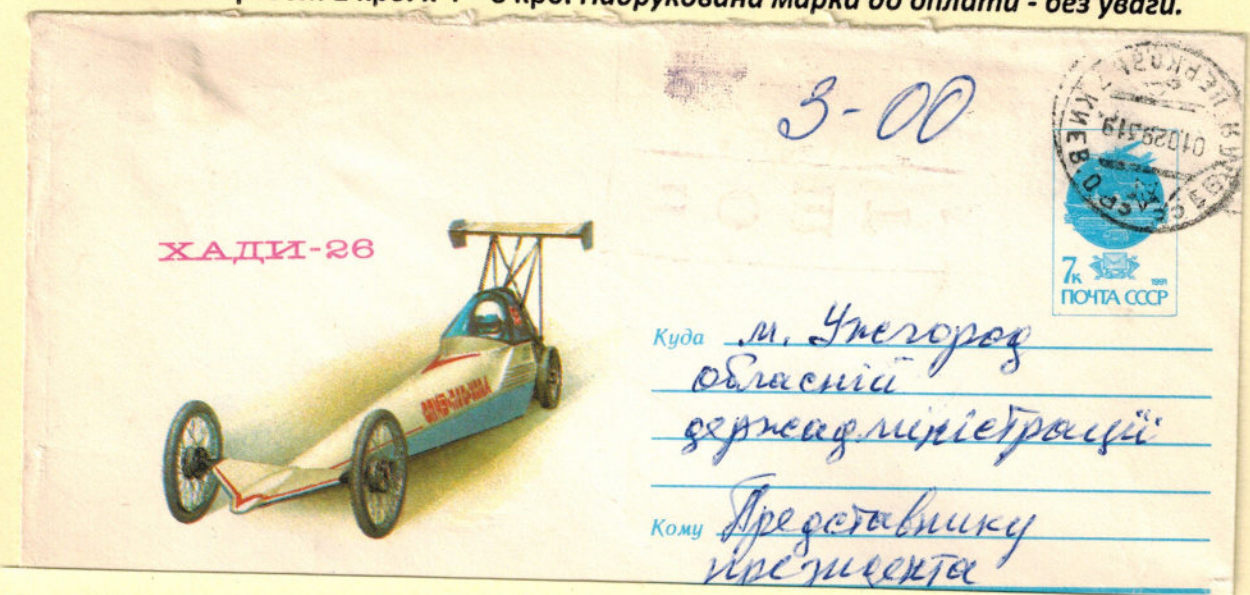 2 крб. Надрукована марка до оплати - без уваги.
3-00
ХАДИ-26
7к
1991
ПОЧТА СССР
КИЕВ О
Куда м. Ужгород
обласній
держадміністрації
Кому Представнику
президента